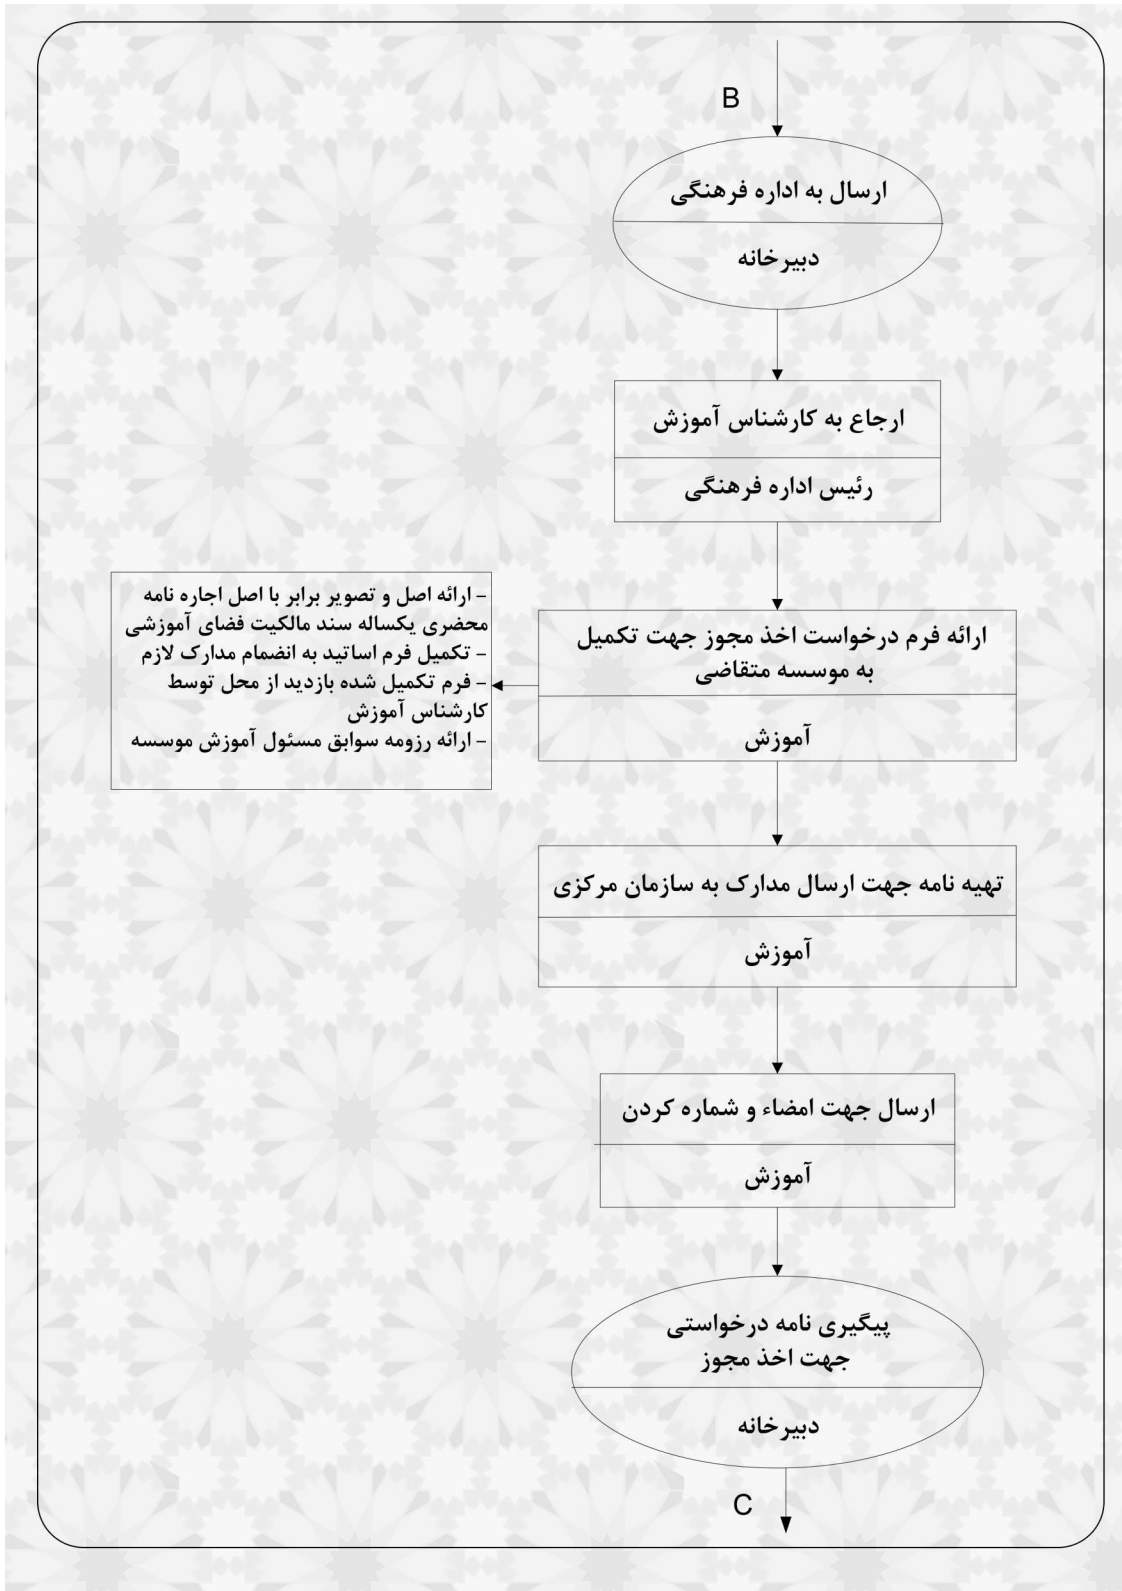 B
ارسال به اداره فرهنگی
دبیرخانه
ارجاع به کارشناس آموزش
رئیس اداره فرهنگی
ارائه فرم درخواست اخذ مجوز جهت تکمیل
به موسسه متقاضی
آموزش
– ارائه اصل و تصویر برابر با اصل اجاره نامه
محضری یکساله سند مالکیت فضای آموزشی
– تکمیل فرم اساتید به انضمام مدارک لازم
– فرم تکمیل شده بازدید از محل توسط
کارشناس آموزش
– ارائه رزومه سوابق مسئول آموزش موسسه
تهیه نامه جهت ارسال مدارک به سازمان مرکزی
آموزش
ارسال جهت امضاء و شماره کردن
آموزش
پیگیری نامه درخواستی
جهت اخذ مجوز
دبیرخانه
C